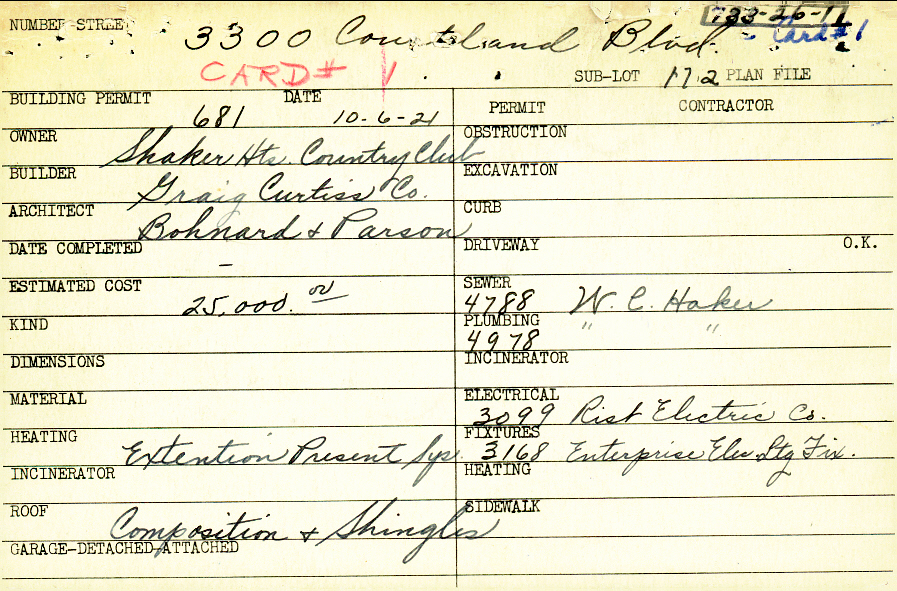 733-26-11
NUMBER-STREET 3300 Courtland Blvd. Card #1
CARD# 1
SUB-LOT 172 PLAN FILE
BUILDING PERMIT 681 DATE 10-6-21
OWNER Shaker Hts. Country Club
BUILDER Graig Curtiss Co.
ARCHITECT Bohnard & Parson
DATE COMPLETED –
ESTIMATED COST 25,000.00
KIND
DIMENSIONS
MATERIAL
HEATING Extention Present Sys.
INCINERATOR
ROOF Composition & Shingles
GARAGE-DETACHED-ATTACHED
PERMIT CONTRACTOR
OBSTRUCTION
EXCAVATION
CURB
DRIVEWAY O.K.
SEWER 4788 W. C. Haker
PLUMBING 4978 " "
INCINERATOR
ELECTRICAL 3099 Rist Electric Co.
FIXTURES 3168 Enterprise Elec. Ltg Fix.
HEATING
SIDEWALK